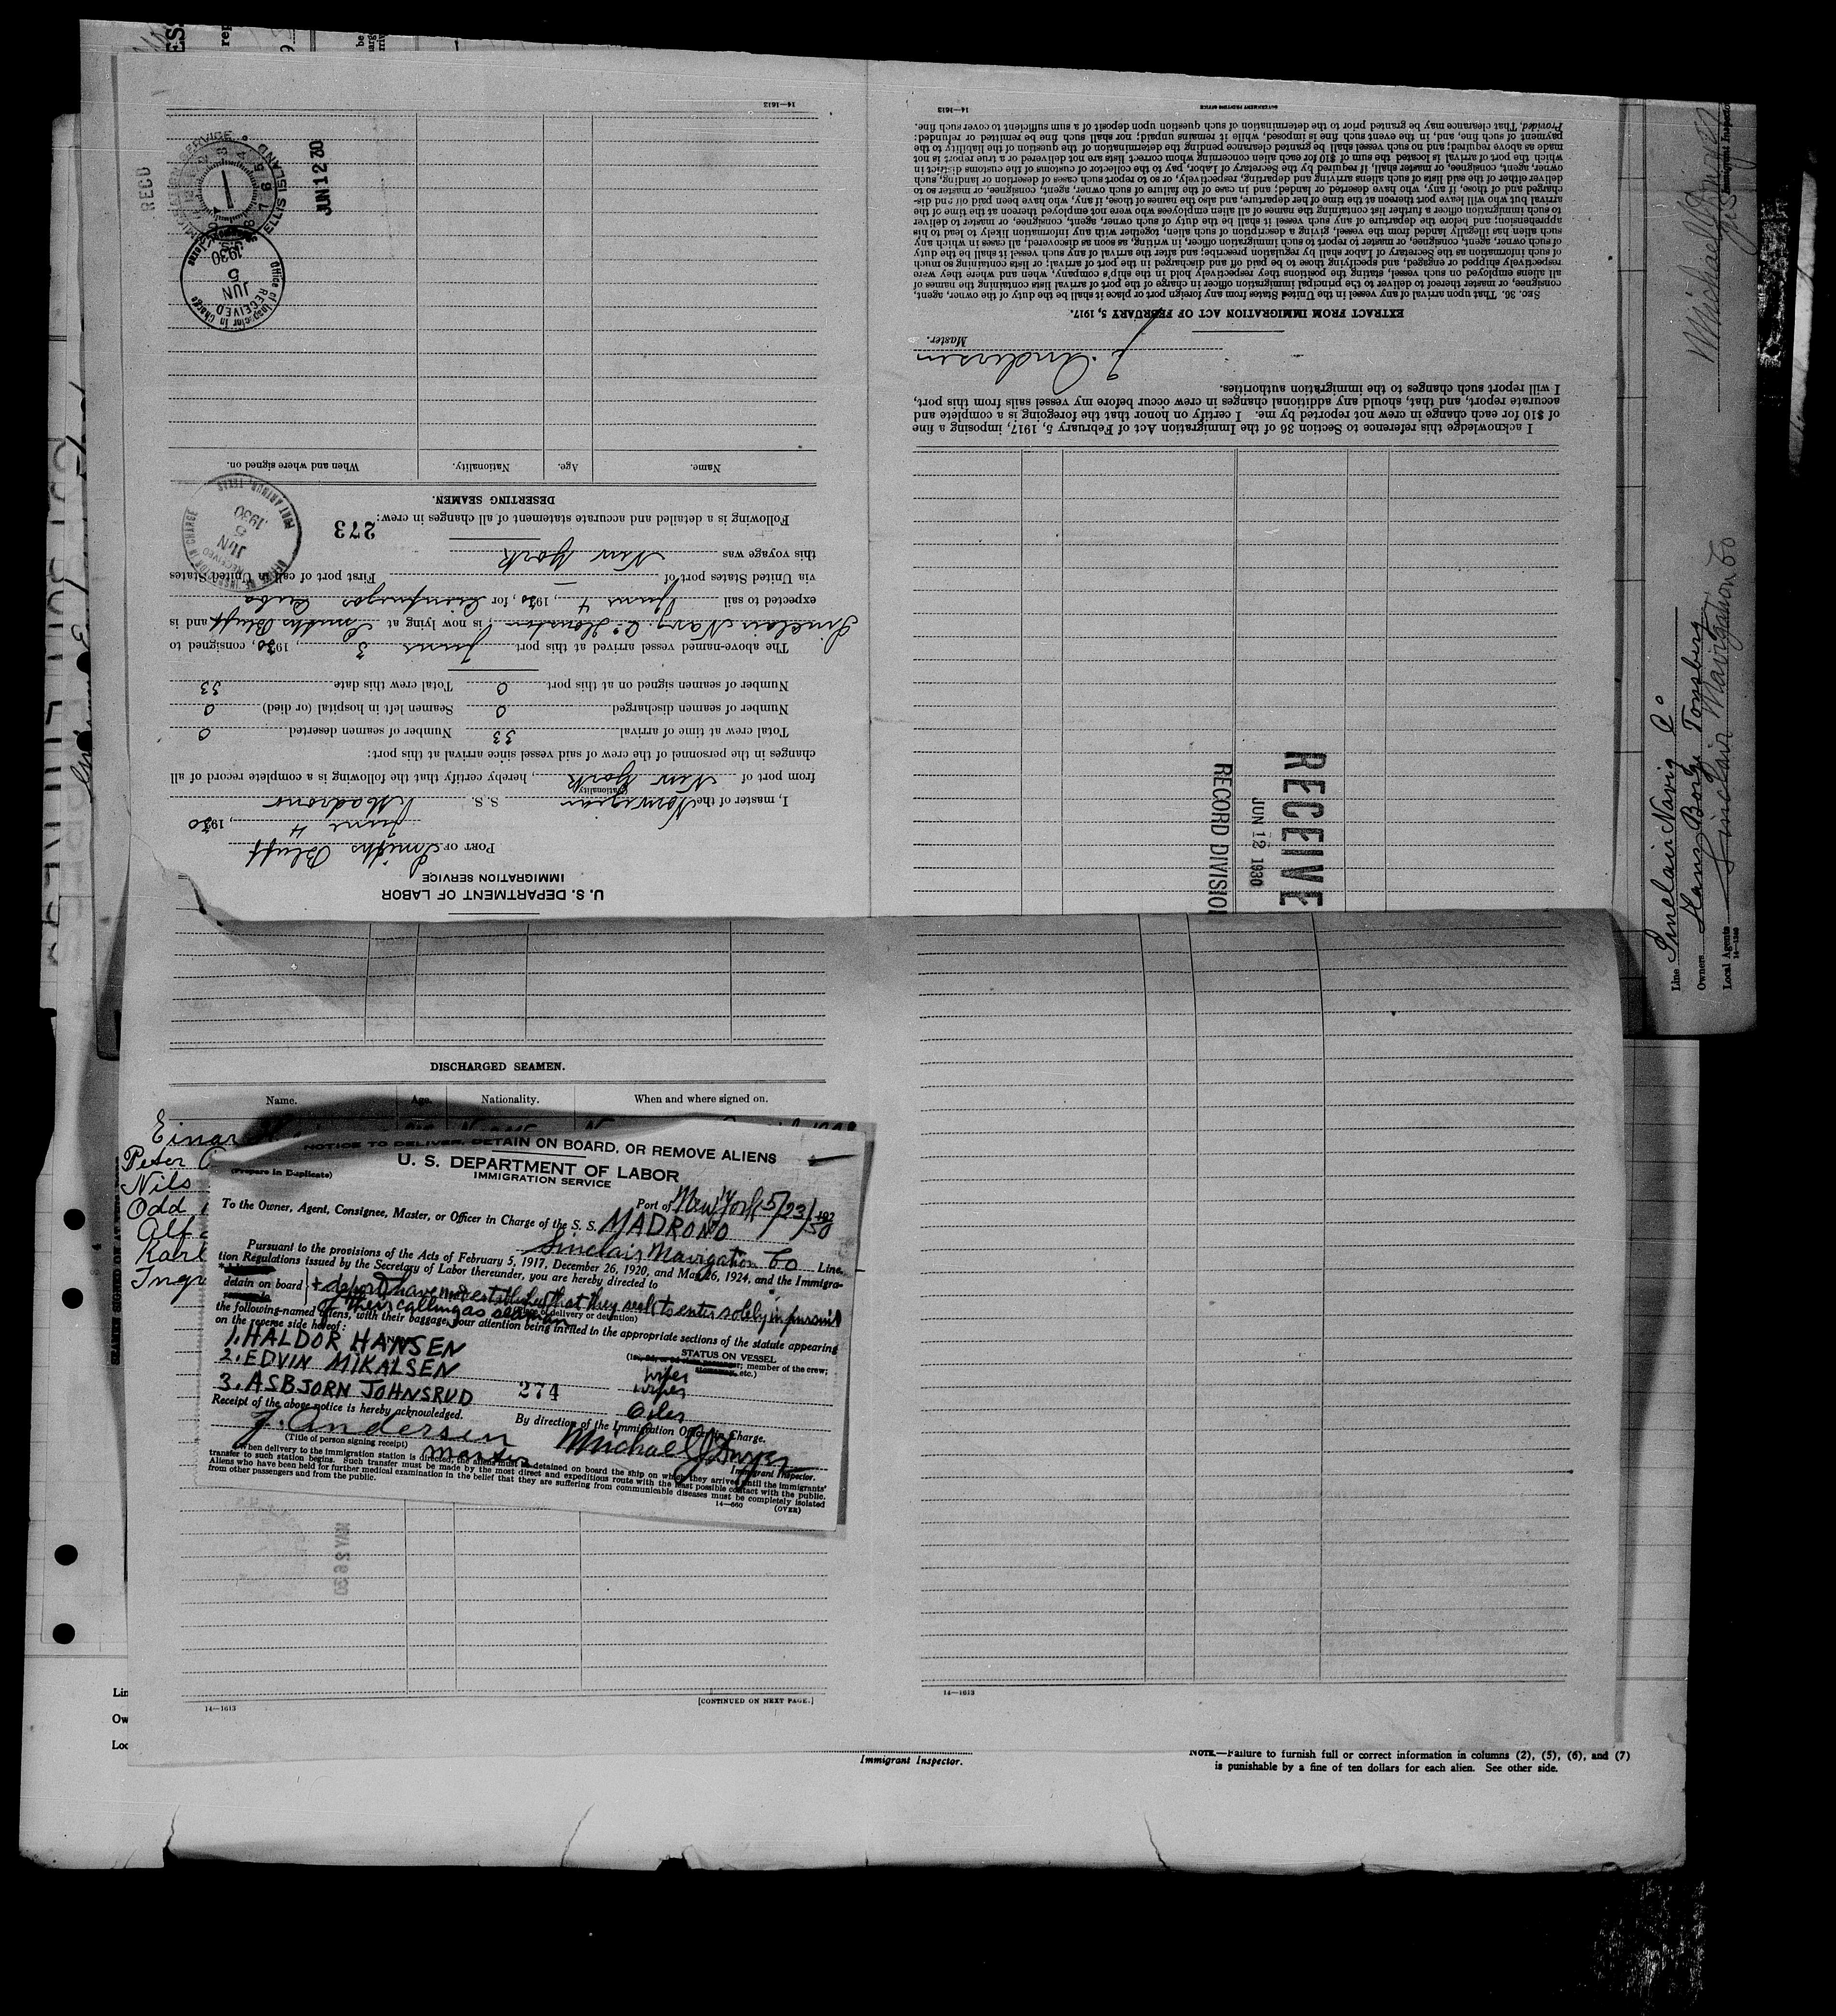 U. S. DEPARTMENT OF LABOR
IMMIGRATION SERVICE
PORT OF Smiths Bluff
June 4, 1930
I, master of the Norwegian S. S. Madrono
(Nationality)
from port of New York, hereby certify that the following is a complete record of all
changes in the personnel of the crew of said vessel since arrival at this port:
Total crew at time of arrival 33 Number of seamen deserted 0
Number of seamen discharged 0 Seamen left in hospital (or died) 0
Number of seamen signed on at this port 0 Total crew this date 33
The above-named vessel arrived at this port June 3, 1930, consigned to
Sinclair Navig Co Houston, is now lying at Smiths Bluff and is
expected to sail June 4, 1930, for Cienfuegos Cuba
via United States port of — First port of call in United States
this voyage was New York
Following is a detailed and accurate statement of all changes in crew:
273
DESERTING SEAMEN.
Name. Age. Nationality. When and where signed on.
OFFICE OF INSPECTOR IN CHARGE
RECEIVED
JUN
5
1930
PORT ARTHUR, TEXAS
Office of Inspector in Charge
RECEIVED
JUN
5
1930
RECD
IMMIGRATION SERVICE
ELLIS ISLAND
JUN 12 30
14—1613
I acknowledge this reference to Section 36 of the Immigration Act of February 5, 1917, imposing a fine
of $10 for each change in crew not reported by me. I certify on honor that the foregoing is a complete and
accurate report, and that, should any additional changes in crew occur before my vessel sails from this port,
I will report such changes to the immigration authorities.
J. Andersen
Master.
EXTRACT FROM IMMIGRATION ACT OF FEBRUARY 5, 1917.
SEC. 36. That upon arrival of any vessel in the United States from any foreign port or place it shall be the duty of the owner, agent,
consignee, or master thereof to deliver to the principal immigration officer in charge of the port of arrival lists containing the names of
all aliens employed on such vessel, stating the positions they respectively hold in the ship's company, when and where they were
respectively shipped or engaged, and specifying those to be paid off and discharged in the port of arrival; or lists containing so much
of such information as the Secretary of Labor shall by regulation prescribe; and after the arrival of any such vessel it shall be the duty
of such owner, agent, consignee, or master to report to such immigration officer, in writing, as soon as discovered, all cases in which any
such alien has illegally landed from the vessel, giving a description of such alien, together with any information likely to lead to his
apprehension; and before the departure of any such vessel it shall be the duty of such owner, agent, consignee, or master to deliver
to such immigration officer a further list containing the names of all alien employees who were not employed thereon at the time of the
arrival but who will leave port thereon at the time of her departure, and also the names of those, if any, who have been paid off and dis-
charged and of those, if any, who have deserted or landed; and in case of the failure of such owner, agent, consignee, or master so to
deliver either of the said lists of such aliens arriving and departing, respectively, or so to report such cases of desertion or landing, such
owner, agent, consignee, or master, shall, if required by the Secretary of Labor, pay to the collector of customs of the customs district in
which the port of arrival is located the sum of $10 for each alien concerning whom correct lists are not delivered or a true report is not
made as above required; and no such vessel shall be granted clearance pending the determination of the question of the liability to the
payment of such fine, and, in the event such fine is imposed, while it remains unpaid; nor shall such fine be remitted or refunded:
Provided, That clearance may be granted prior to the determination of such question upon deposit of a sum sufficient to cover such fine.
14—1613 GOVERNMENT PRINTING OFFICE
RECEIVE
JUN 12 1930
RECORD DIVISION
Line Sinclair Navig Co
Owners Hans Borge Tonsberg
Local Agents Sinclair Navigation Co
14—1240
Michael J Dwyer
Immigrant Inspector
DISCHARGED SEAMEN.
Name. Age. Nationality. When and where signed on.
Einar
Peter
Nils
Odd
Alf
Karl
Ingv
NOTICE TO DELIVER, DETAIN ON BOARD, OR REMOVE ALIENS
(Prepare in Duplicate)
U. S. DEPARTMENT OF LABOR
IMMIGRATION SERVICE
Port of New York 5/23/1930
To the Owner, Agent, Consignee, Master, or Officer in Charge of the S. S. MADRONO
Sinclair Navigation Co Line.
Pursuant to the provisions of the Acts of February 5, 1917, December 26, 1920, and May 26, 1924, and the Immigra-
tion Regulations issued by the Secretary of Labor thereunder, you are hereby directed to
detain on board + deport have not established that they seek to enter solely in pursuit
of their calling as seaman
(Place of delivery or detention)
the following-named aliens, with their baggage, your attention being invited to the appropriate sections of the statute appearing
on the reverse side hereof:
STATUS ON VESSEL
member of the crew;
stowaway, etc.)
1. HALDOR HANSEN wiper
2. EDVIN MIKALSEN wiper
3. ASBJORN JOHNSRUD 274 Oiler
Receipt of the above notice is hereby acknowledged.
By direction of the Immigration Officer in Charge.
J. Andersen Michael J Dwyer
(Title of person signing receipt) master Immigrant Inspector.
When delivery to the immigration station is directed, the aliens must be detained on board the ship on which they arrive until the immigrants'
transfer to such station begins. Such transfer must be made by the most direct and expeditious route with the least possible contact with the public.
Aliens who have been held for further medical examination in the belief that they are suffering from communicable diseases must be completely isolated
from other passengers and from the public.
14—660 (OVER)
MAY 26 30
14—1613 [CONTINUED ON NEXT PAGE.]
14—1613
Lin
Ow
Loc
Immigrant Inspector.
NOTE.—Failure to furnish full or correct information in columns (2), (5), (6), and (7)
is punishable by a fine of ten dollars for each alien. See other side.